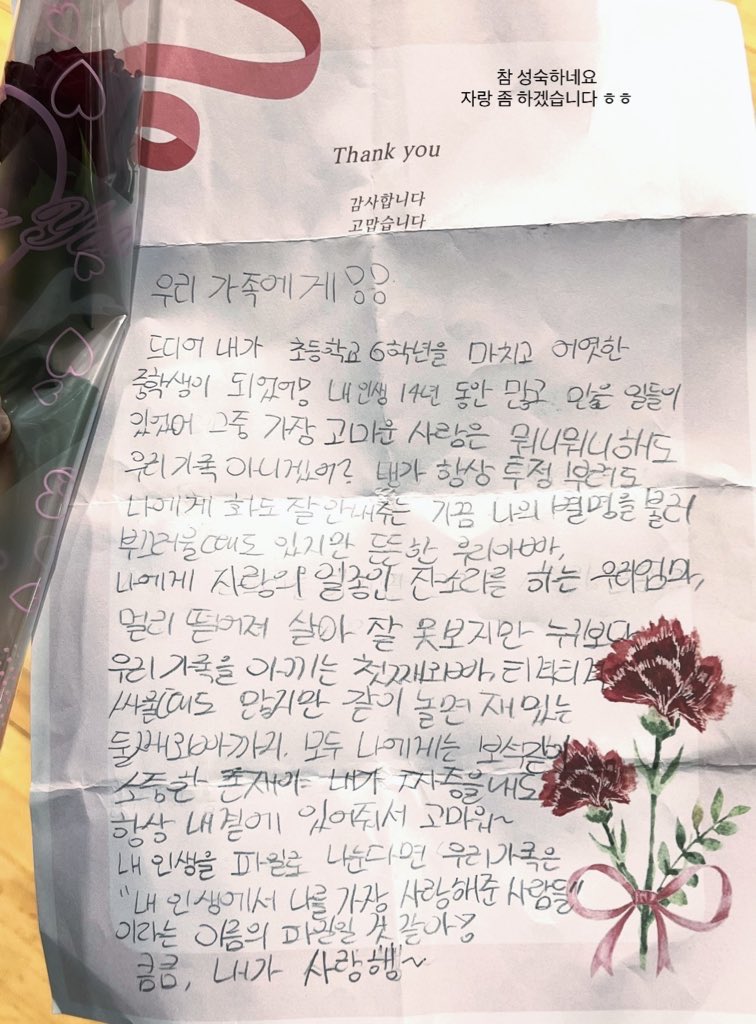 참 성숙하네요
자랑 좀 하겠습니다 ㅎㅎ
Thank you
감사합니다
고맙습니다
우리 가족에게
드디어 내가 초등학교 6학년을 마치고 어엿한
중학생이 되었어 내 인생 14년 동안 많고 많은 일들이
있었어 그중 가장 고마운 사람은 뭐니뭐니해도
우리가족 아니겠어? 내가 항상 투정 부려도
나에게 화도 잘 안내주는 가끔 나의 별명을 불러
부끄러울때도 있지만 든든한 우리아빠,
나에게 사랑의 일종인 잔소리를 하는 우리엄마,
멀리 떨어져 살아 잘 못보지만 누구보다
우리 가족을 아끼는 첫째오빠, 티격티격
싸울때도 많지만 같이 놀면 재밌는
둘째오빠까지. 모두 나에게는 보석같이
소중한 존재야 내가 짜증을내도
항상 내곁에 있어줘서 고마워~
내 인생을 파일로 나눈다면 우리가족은
"내 인생에서 나를 가장 사랑해준 사람들"
이라는 이름의 파일일 것 같아
큼큼, 내가 사랑행~